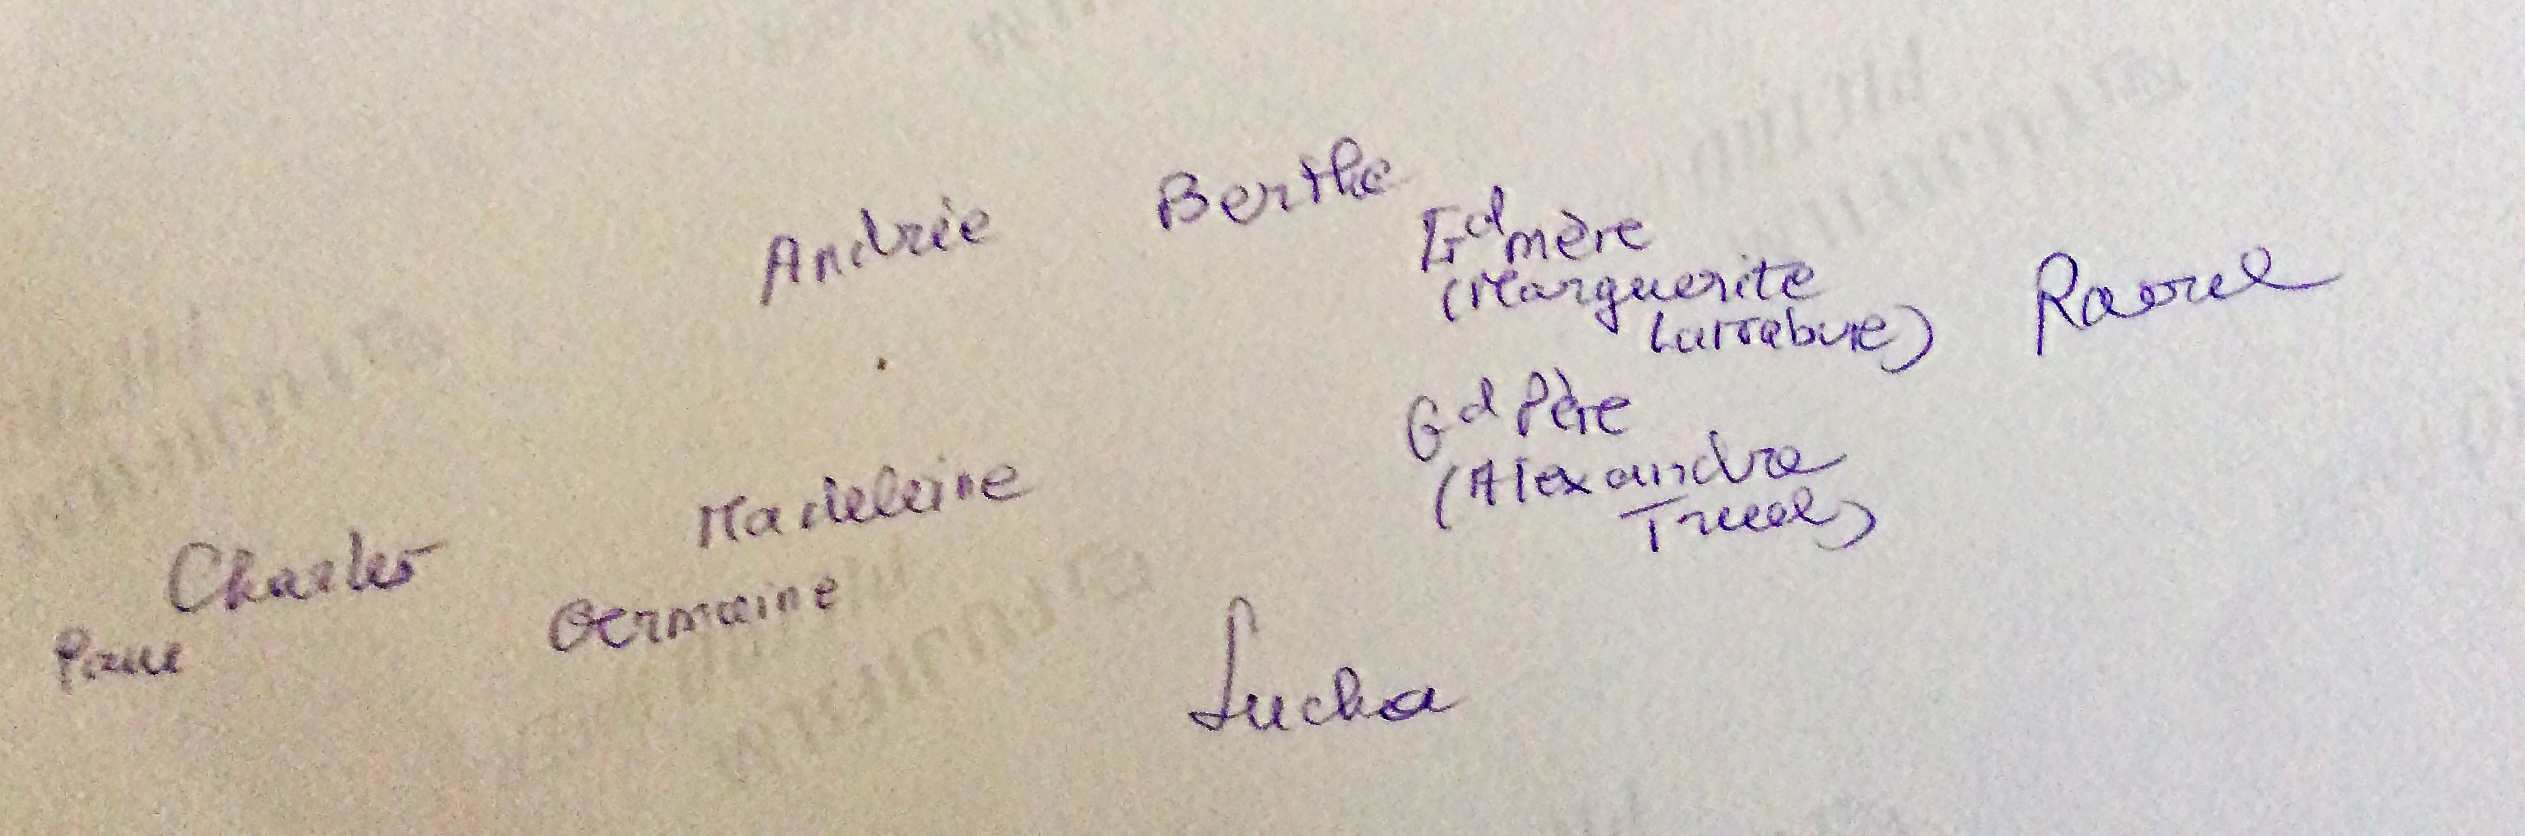 Andrée Berthe
Gd mère
(Marguerite
Larrabure) Raoul
Gd Père
(Alexandre
Truel)
Madeleine
Charles
Germaine
Pierre
Lucha